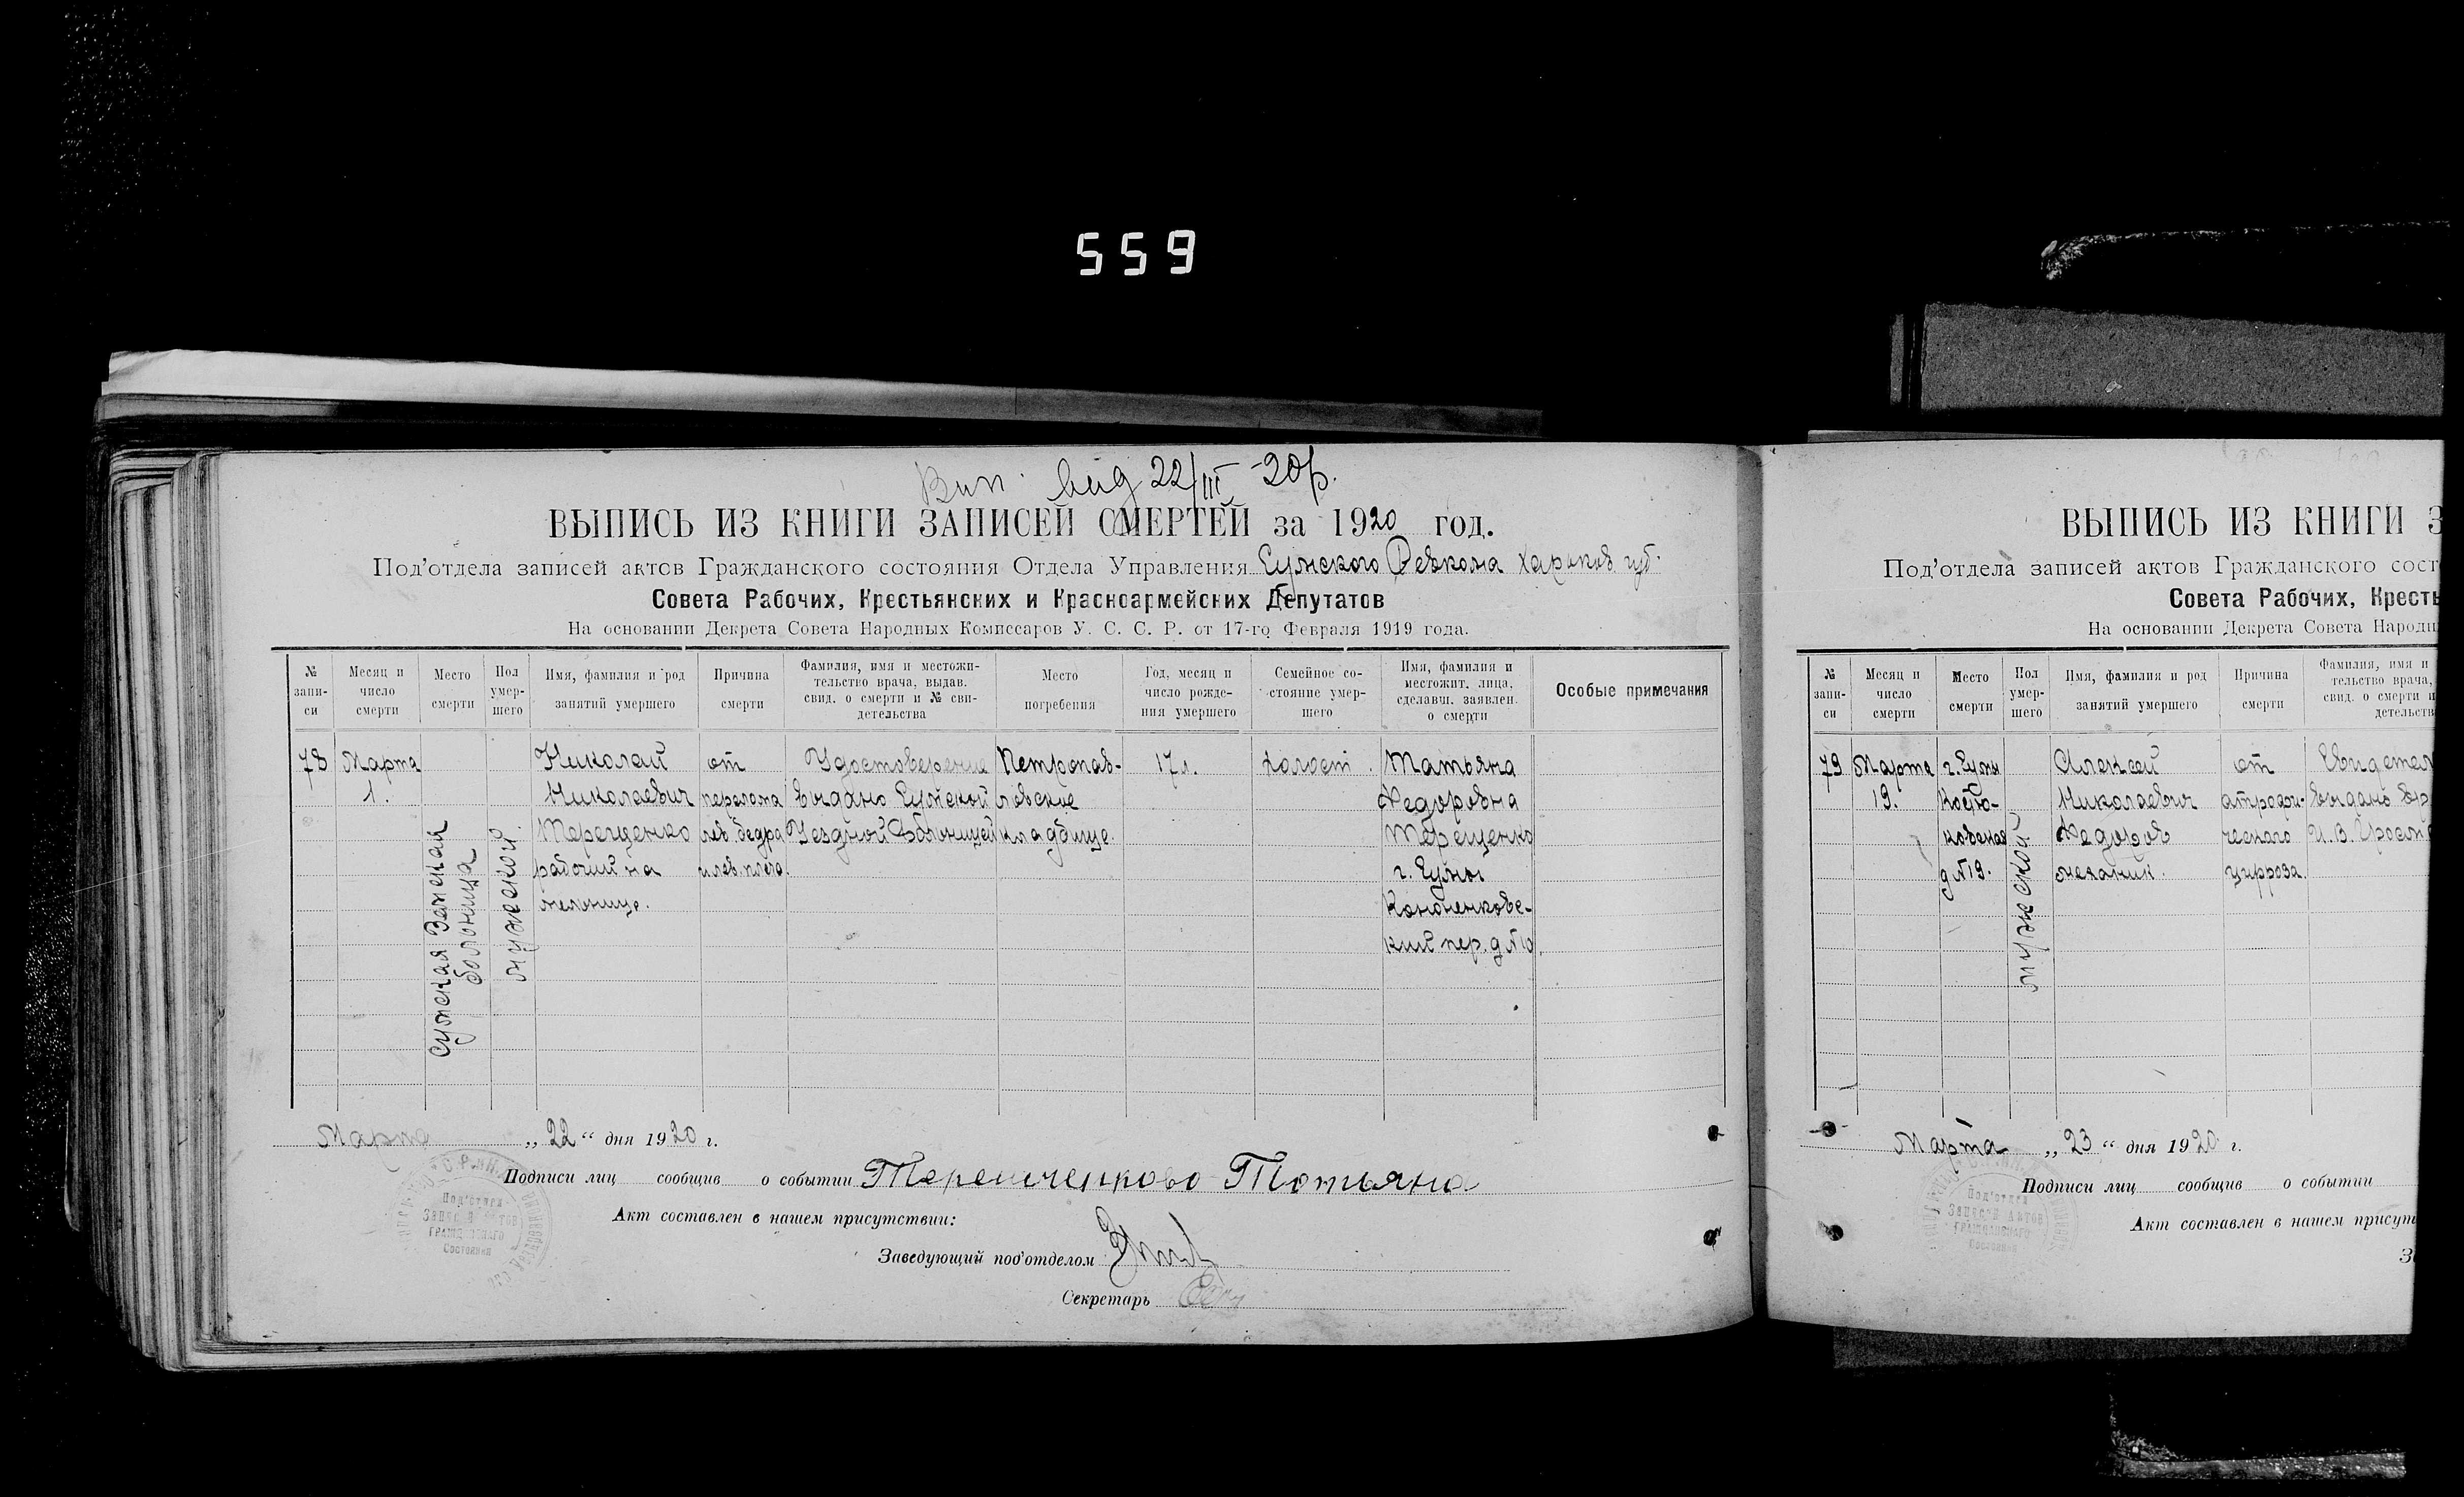 559
22/III -20р.
ВЫПИСЬ ИЗ КНИГИ ЗАПИСЕЙ СМЕРТЕЙ за 1920 год.
Под'отдела записей актов Гражданского состояния Отдела Управления Сумского Ревкома Харьков. губ.
Совета Рабочих, Крестьянских и Красноармейских Депутатов
На основании Декрета Совета Народных Комиссаров У. С. С. Р. от 17-го Февраля 1919 года.
№ запи- си
Месяц и число смерти
Место смерти
Пол умер- шего
Имя, фамилия и род занятий умершего
Причина смерти
Фамилия, имя и местожи- тельство врача, выдав. свид. о смерти и № сви- детельства
Место погребения
Год, месяц и число рожде- ния умершего
Семейное со- стояние умер- шего
Имя, фамилия и местожит. лица, сделавш. заявлен. о смерти
Особые примечания
78
Марта
1.
Сумская Земская
больница
мужской
Николай
Николаевич
Терещенко
рабочий на
мельнице.
от
перелома
лев. бедра
и лев. плеча.
Удостоверение
выдано Сумской
Уездной больницей
Петропав-
ловское
кладбище.
17 л.
холост.
Татьяна
Федоровна
Терещенко
г. Сумы
Кононенковс-
кий пер. д №10.
Марта „22“ дня 1920 г.
Подписи лиц сообщив о событии Терешченково Тотьяна
Под'отдел
Записи Актов
Гражданскаго
Состояния
Акт составлен в нашем присутствии:
Заведующий под'отделом
Секретарь
ВЫПИСЬ ИЗ КНИГИ З
Под'отдела записей актов Гражданского сост
Совета Рабочих, Кресть
На основании Декрета Совета Народн
№ запи- си
Месяц и число смерти
Место смерти
Пол умер- шего
Имя, фамилия и род занятий умершего
Причина смерти
Фамилия, имя и тельство врача, свид. о смерти и детельств
79
Марта
19.
г. Сумы
д №19.
мужской
Алексей
Николаевич
Федоров
механик.
от
атрофи-
ческого
цирроза.
Свидетел
выдано вр
Марта „23“ дня 1920 г.
Подписи лиц сообщив о событии
Под'отдел
Записи Актов
Гражданскаго
Состояния
Акт составлен в нашем присут
З